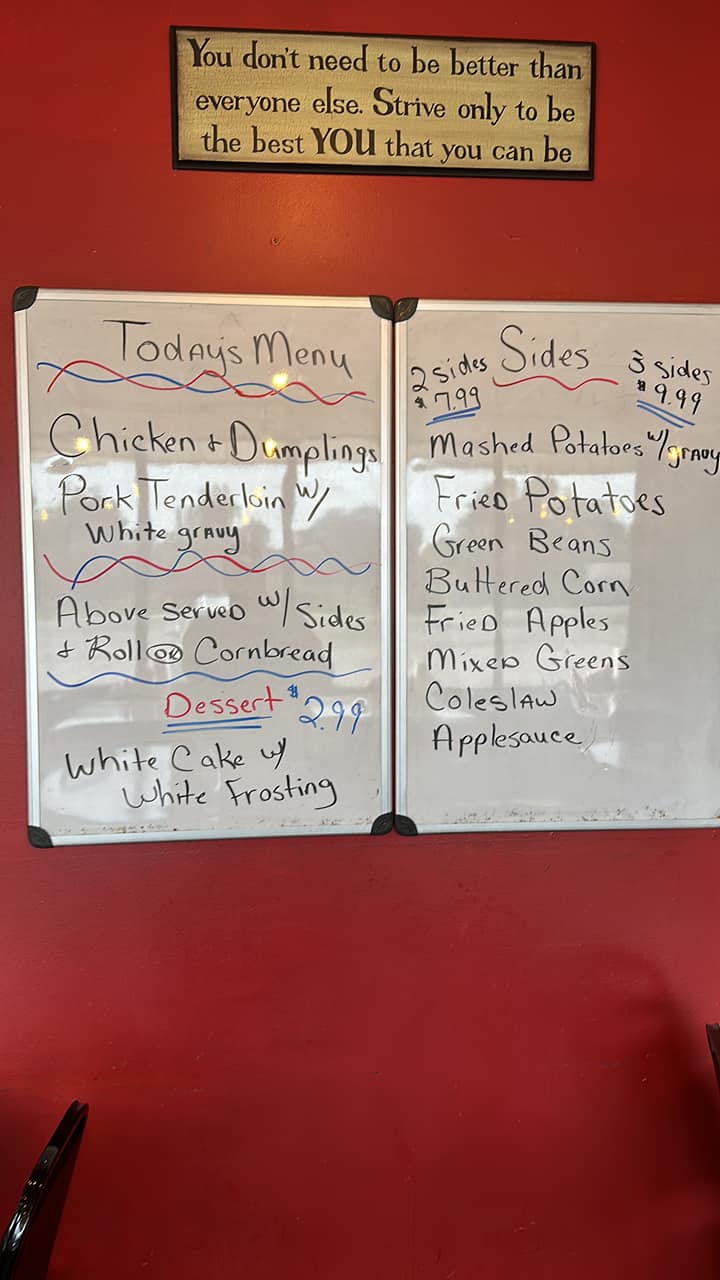 You don't need to be better than
everyone else. Strive only to be
the best YOU that you can be
Today's Menu
Chicken + Dumplings
Pork Tenderloin w/
White gravy
Above served w/ Sides
+ Roll or Cornbread
Dessert $2.99
White Cake w/
White Frosting
Sides
2 sides
$7.99
3 sides
$9.99
Mashed Potatoes w/gravy
Fried Potatoes
Green Beans
Buttered Corn
Fried Apples
Mixed Greens
Coleslaw
Applesauce